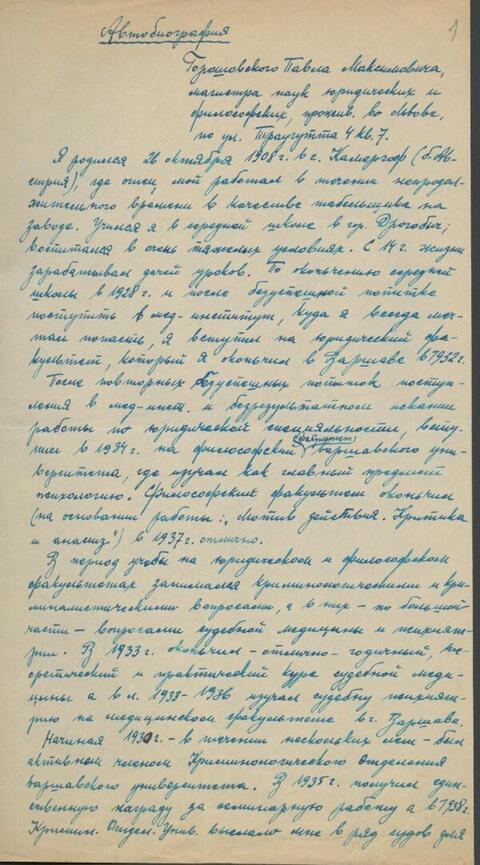 1
Автобиография
Горошовского Павла Максимовича,
магистра наук юридических и
философских, прожив. во Львове,
по ул. Траугутта 4 кв. 7.
Я родился 26 октября 1908 г. в с. Камергоф (б. Ав-
стрия), где отец мой работал в течении непродол-
жительного времени в качестве табельщика на
заводе. Учился я в средней школе в гор. Дрогобич;
воспитался в очень тяжелых условиях. С 14 г. жизни
зарабатывал дачей уроков. По окончению средней
школы в 1928 г. и после безуспешной попытке
поступить в мед-институт, куда я всегда меч-
тал попасть, я вступил на юридический фа-
культет, который я окончил в Варшаве в 1932 г.
После повторных безуспешных попыток поступ-
ления в мед-инст. и безрезультатном искании
работы по юридической специяльности, всту-
пил в 1934 г. на философский (факультет) варшавского уни-
верситета, где изучал как главный предмет
психологию. Философский факультет окончил
(на основании работы: „Мотив действия. Критика
и анализ") в 1937 г. отлично.
В период учобы на юридическом и философском
факультетах занимался криминологическими и кри-
миналистическими вопросами, а в них – по большой
части – вопросами судебной медицины и психият-
рии. В 1933 г. окончил – отлично – годичный, тео-
ретический и практический курс судебной меди-
цины а в л. 1933–1936 изучал судебну психият-
рию на медицинском факультете в г. Варшава.
Начиная 1930 г. – в течении нескольких лет – был
активным членом Криминологического Отделения
варшавского университета. В 1935 г. получил един-
ственную награду за семинарную работу а в 1938 г.
Кримин. Отдел. Унив. выслало мне в ряд судов для